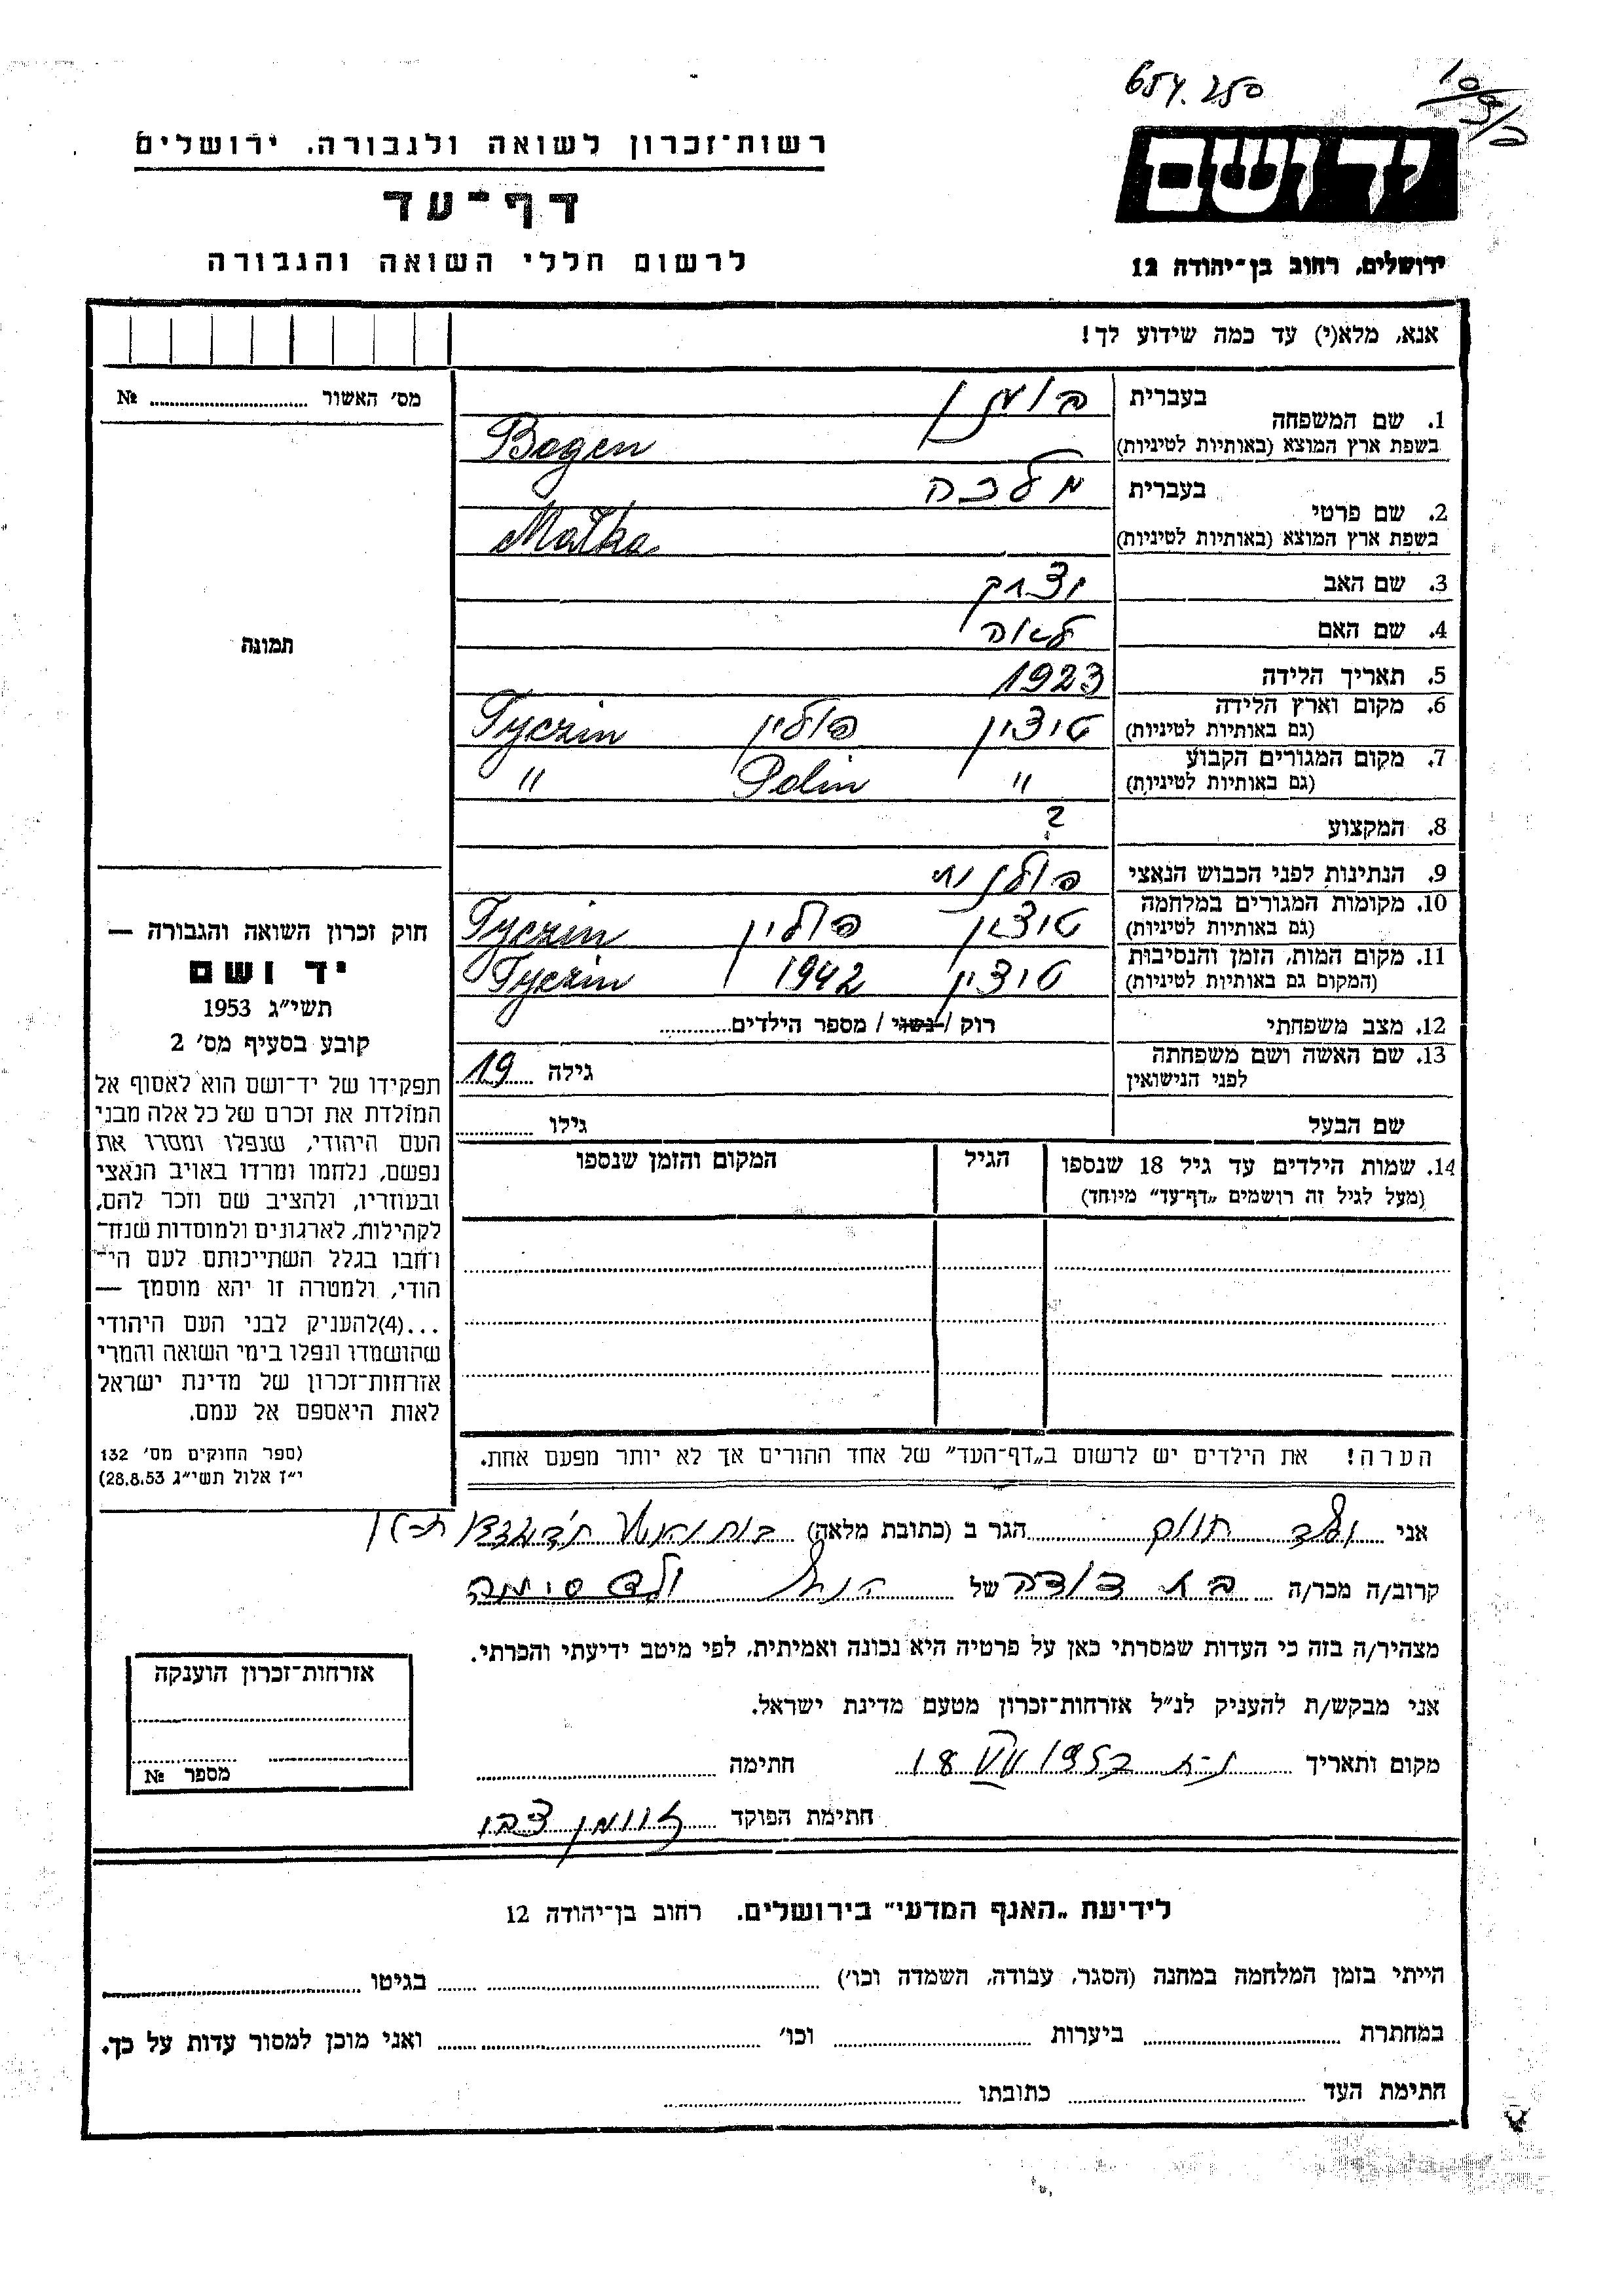 654.250
רשות־זכרון לשואה ולגבורה. ירושלים
דף־עד
לרשום חללי השואה והגבורה
ידושם
ירושלים, רחוב בן־יהודה 12
אנא, מלא(י) עד כמה שידוע לך!
מס׳ האשור № 
1. שם המשפחה
בעברית
בשפת ארץ המוצא (באותיות לטיניות)
Bogen
2. שם פרטי
בעברית מלכה
בשפת ארץ המוצא (באותיות לטיניות)
Małka
3. שם האב יצחק
4. שם האם לאה
5. תאריך הלידה 1923
6. מקום וארץ הלידה
(גם באותיות לטיניות)
טיצין פולין Tyczin
7. מקום המגורים הקבוע
(גם באותיות לטיניות)
" Polin "
8. המקצוע ?
9. הנתינות לפני הכבוש הנאצי פולנית
10. מקומות המגורים במלחמה
(גם באותיות לטיניות)
טיצין פולין Tyczin
11. מקום המות, הזמן והנסיבות
(המקום גם באותיות לטיניות)
טיצין 1942 Tyczin
12. מצב משפחתי רוק / נשוי / מספר הילדים
13. שם האשה ושם משפחתה
לפני הנישואין
גילה 19
שם הבעל גילו
14. שמות הילדים עד גיל 18 שנספו
(מעל לגיל זה רושמים „דף־עד” מיוחד)
הגיל
המקום והזמן שנספו
הערה! את הילדים יש לרשום ב„דף־העד” של אחד ההורים אך לא יותר מפעם אחת.
תמונה
חוק זכרון השואה והגבורה —
יד ושם
תשי״ג 1953
קובע בסעיף מס׳ 2
תפקידו של יד־ושם הוא לאסוף אל
המולדת את זכרם של כל אלה מבני
העם היהודי, שנפלו ומסרו את
נפשם, נלחמו ומרדו באויב הנאצי
ובעוזריו, ולהציב שם וזכר להם,
לקהילות, לארגונים ולמוסדות שנחר־
חבו בגלל השתייכותם לעם הי־
הודי, ולמטרה זו יהא מוסמך —
...(4)להעניק לבני העם היהודי
שהושמדו ונפלו בימי השואה והמרי
אזרחות־זכרון של מדינת ישראל
לאות היאספם אל עמם.
(ספר החוקים מס׳ 132
י״ז אלול תשי״ג 28.8.53)
אני הגר ב (כתובת מלאה)
קרוב/ה מכר/ה בת דודה של
מצהיר/ה בזה כי העדות שמסרתי כאן על פרטיה היא נכונה ואמיתית, לפי מיטב ידיעתי והכרתי.
אני מבקש/ת להעניק לנ״ל אזרחות־זכרון מטעם מדינת ישראל.
מקום ותאריך חתימה
חתימת הפוקד
אזרחות־זכרון הוענקה
מספר №
לידיעת „האגף המדעי” בירושלים. רחוב בן־יהודה 12
הייתי בזמן המלחמה במחנה (הסגר, עבודה, השמדה וכו׳) בגיטו
במחתרת ביערות וכו׳ ואני מוכן למסור עדות על כך.
חתימת העד כתובתו